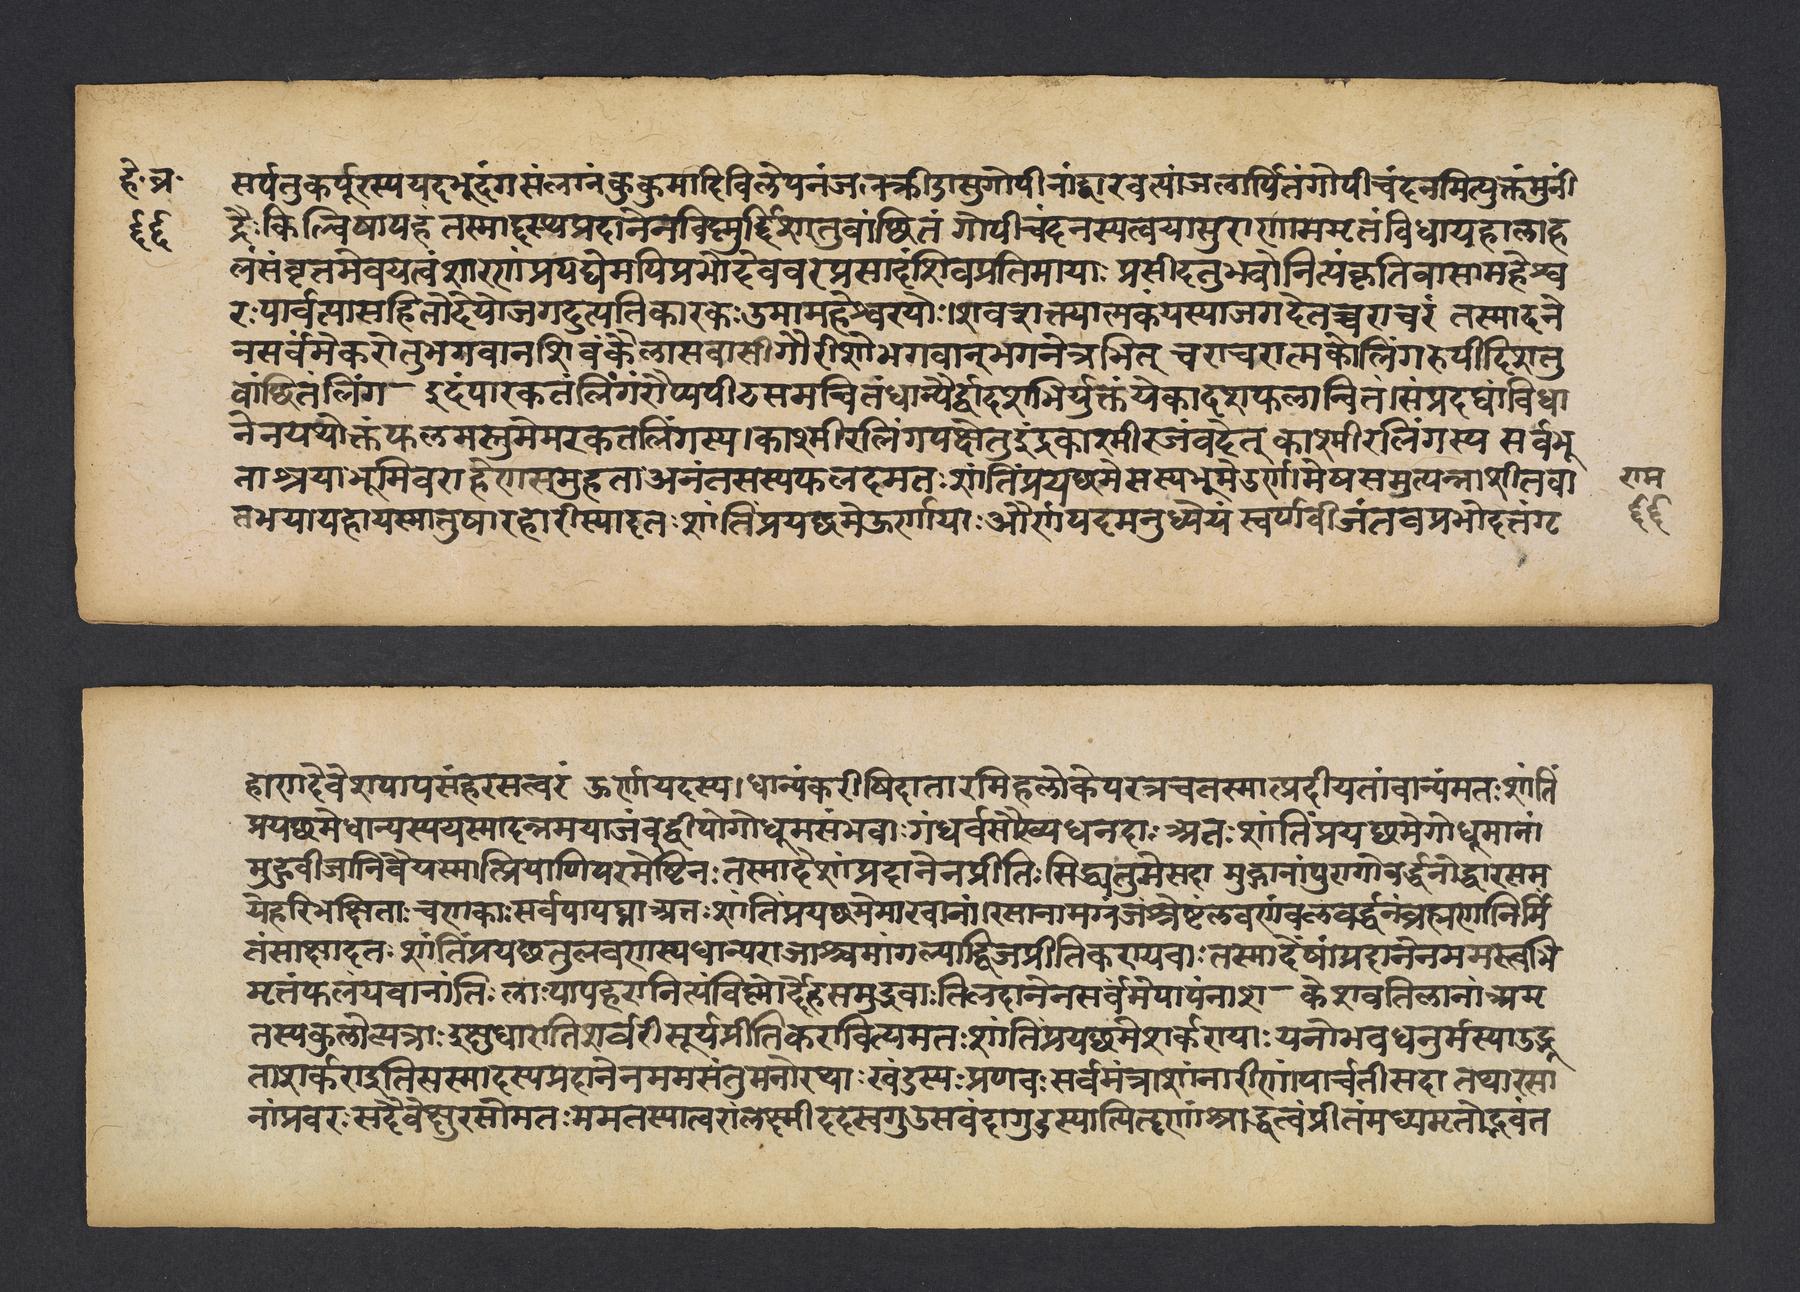 हे॰ प्र॰
६६
सर्पतुकर्पूरस्पयदभूदंगसंलग्नंकुकुमादिविलेपनंजलक्रीडासुगोपीनांद्वारवत्यांजलार्पितंगोपीचंदनमित्पुक्तंमुनीं
द्रैःकिल्विषापहं तस्मादस्प्यप्रदानेनविद्मुर्द्दिशतुवांछितं गोपीचंदनस्पत्वयासुराणाममृतंविधायहालाह
लंसंवृतमेवयत्वंशरणंप्रपद्येमपिप्रभोदेववरप्रसादंशिवप्रतिमायाः प्रसीदतुभवोनित्पंकृतिवासामहेश्व
रःपार्वत्पासहितोदेयोजगदुत्पतिकारकःउमामहेश्वरयोः।शिवशक्त्यात्मकंयस्पाजगदेतच्चराचरं तस्मादने
नसर्वंमेकरोतुभगवानशिवंकैलासवासीगौरीशोभगवान्भगनेत्रभित् चराचरात्मकोलिंगरुपीदिशतु
वांछितंलिंग— इदंपारकतंलिंगंरौप्यपीठसमन्वितंधान्यैर्द्वादशभिर्युक्तंयेकादशफलान्वितं।संप्रदद्यांविधा
नेनयथोक्तंफलमस्तुमेमरकतलिंगस्प।काश्मीरलिंगपक्षेतुइंद्रकाश्मीरजंवदेत् काश्मीरलिंगस्प सर्वभू
ताश्रयाभूमिवराहेणसमुद्धताअनंतसस्पफलदमतःशांतिंप्रयछमेसस्पभूमेःउर्णामेषसमुत्पन्नाशीतवा
तभयापहायस्मातुषारहारीस्पादतःशांतिंप्रयछमेऊर्णायाःऔर्णंपदमनुध्येयं स्वर्णवीजंतवप्रभोदत्तंगृ
राम
६६
हाणदेवेशपापसंहरसत्वरं ऊर्णायदस्प।धान्यंकरोषिदातारमिहलोकेपरत्रचतस्मात्प्रदीयतांवान्यंमतःशांतिं
प्रयछमेधान्यस्पयस्मादन्नमयाजंबुद्वीपोगोधूमसंभवाःगंधर्वसौख्यधनदाःअतःशांतिंप्रयछमेगोधूमानां
मुद्गवीजानिवैयस्मात्प्रियाणिपरमेष्टिनःतस्मादेशांप्रदानेनप्रीतिःसिद्ध्यतुमेसदा मुद्गानांपुरागोवर्द्धनोद्धारसम
येहरिभक्षिताःचणकाःसर्वपापघ्नाअतःशांतिंप्रयछमेमाखानां।रसानामग्रजंश्रेष्टंलवणंबलवर्द्धनंब्रह्मणानिर्मि
तंसाक्षादतःशांतिंप्रयछतुलवणस्पधान्यराजाश्चमांगल्याद्विजप्रीतिकरायवाःतस्मादेषांप्रदानेनममस्त्वभि
मृतंफलंयवानांतिःलाःपापहरानित्पंविष्णोर्देहसमुद्भवाःतिलदानेनसर्वंमेपापंनाश— केशवतिलानांअम
तस्पकुलोत्पन्नाःइक्षुधारातिशर्वरीसूर्यप्रीतिकरावित्पमतःशांतिंप्रयछमेशर्करायाःयनोभवधनुर्मस्पाउद्भू
ताशर्कराइतिसस्मादस्पप्रदानेनममसंतुमनोरथाःखंडस्पःप्रणवःसर्वमंत्राशांनारीणांपार्वतीसदा तथारसा
नांप्रवरःसदैवेक्षुरसोमतःममतस्पात्वरांलक्ष्मीददस्वगुडसवंदागुडस्पात्पितॄणांश्राद्धत्वंप्रीतंमध्यमृतोद्भवंत